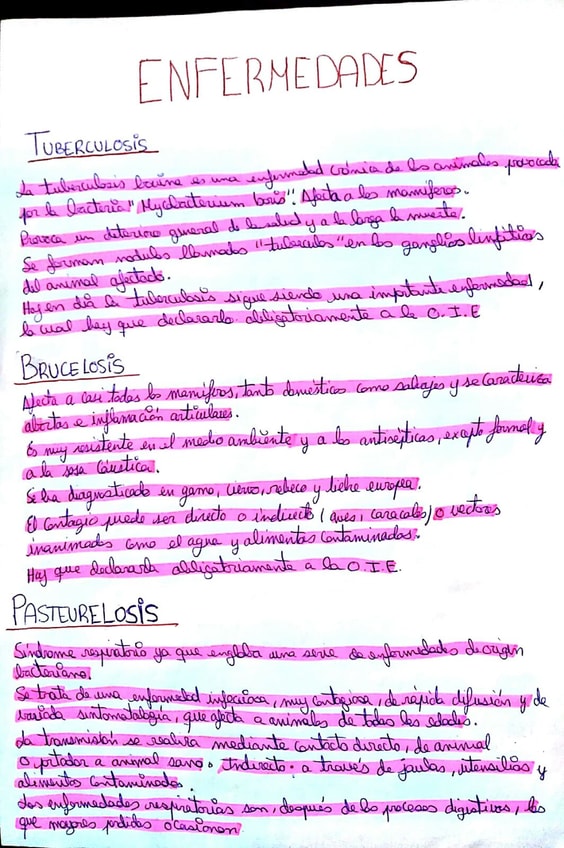 ENFERMEDADES
TUBERCULOSIS
La tuberculosis bovina es una enfermedad crónica de los animales provocada
por la bacteria "Mycobacterium bovis". Afecta a los mamíferos.
Provoca un deterioro general de la salud y a la larga la muerte.
Se forman nodulos llamados "tuberculos" en los ganglios linfáticos
del animal afectado.
Hoy en día la tuberculosis sigue siendo una importante enfermedad,
la cual hay que declararla obligatoriamente a la O.I.E
BRUCELOSIS
Afecta a casi todos los mamíferos, tanto domésticos como salvajes y se caracteriza
abortos e inflamación articulares.
Es muy resistente en el medio ambiente y a los antisépticos, excepto formol y
a la sosa caústica.
Se ha diagnosticado en gamo, ciervo, rebeco y liebre europea.
El contagio puede ser directo o indirecto (aves, caracoles) o vectores
inanimados como el agua y alimentos contaminados.
Hay que declararla obligatoriamente a la O.I.E.
PASTEURELOSIS
Síndrome respiratorio ya que engloba una serie de enfermedades de origen
bacteriano.
Se trata de una enfermedad infecciosa, muy contagiosa, de rápida difusión y de
variada sintomatología, que afecta a animales de todas las edades.
La transmisión se realiza mediante contacto directo, de animal
o portador a animal sano o Indirecto: a través de jaulas, utensilios y
alimentos contaminados.
Las enfermedades respiratorias son, después de los procesos digestivos, las
que mayores perdidas ocasionan.